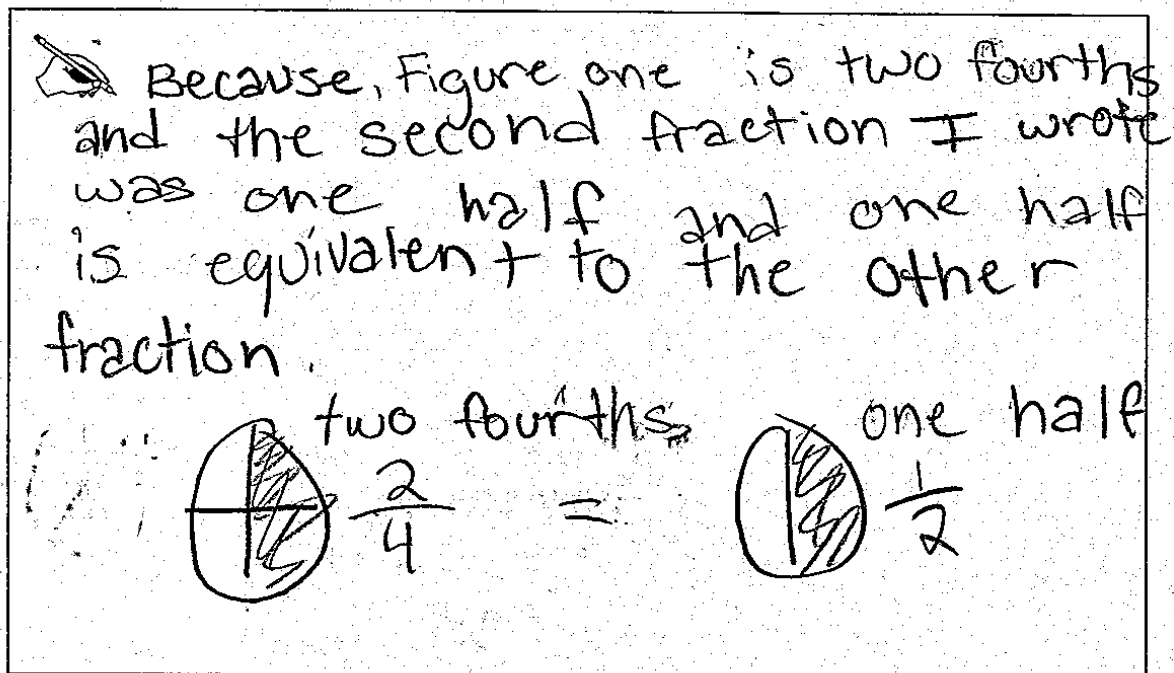 Because, Figure one is two fourths
and the second fraction I wrote
was one half and one half
is equivalent to the other
fraction.
two fourths one half
2/4 = 1/2